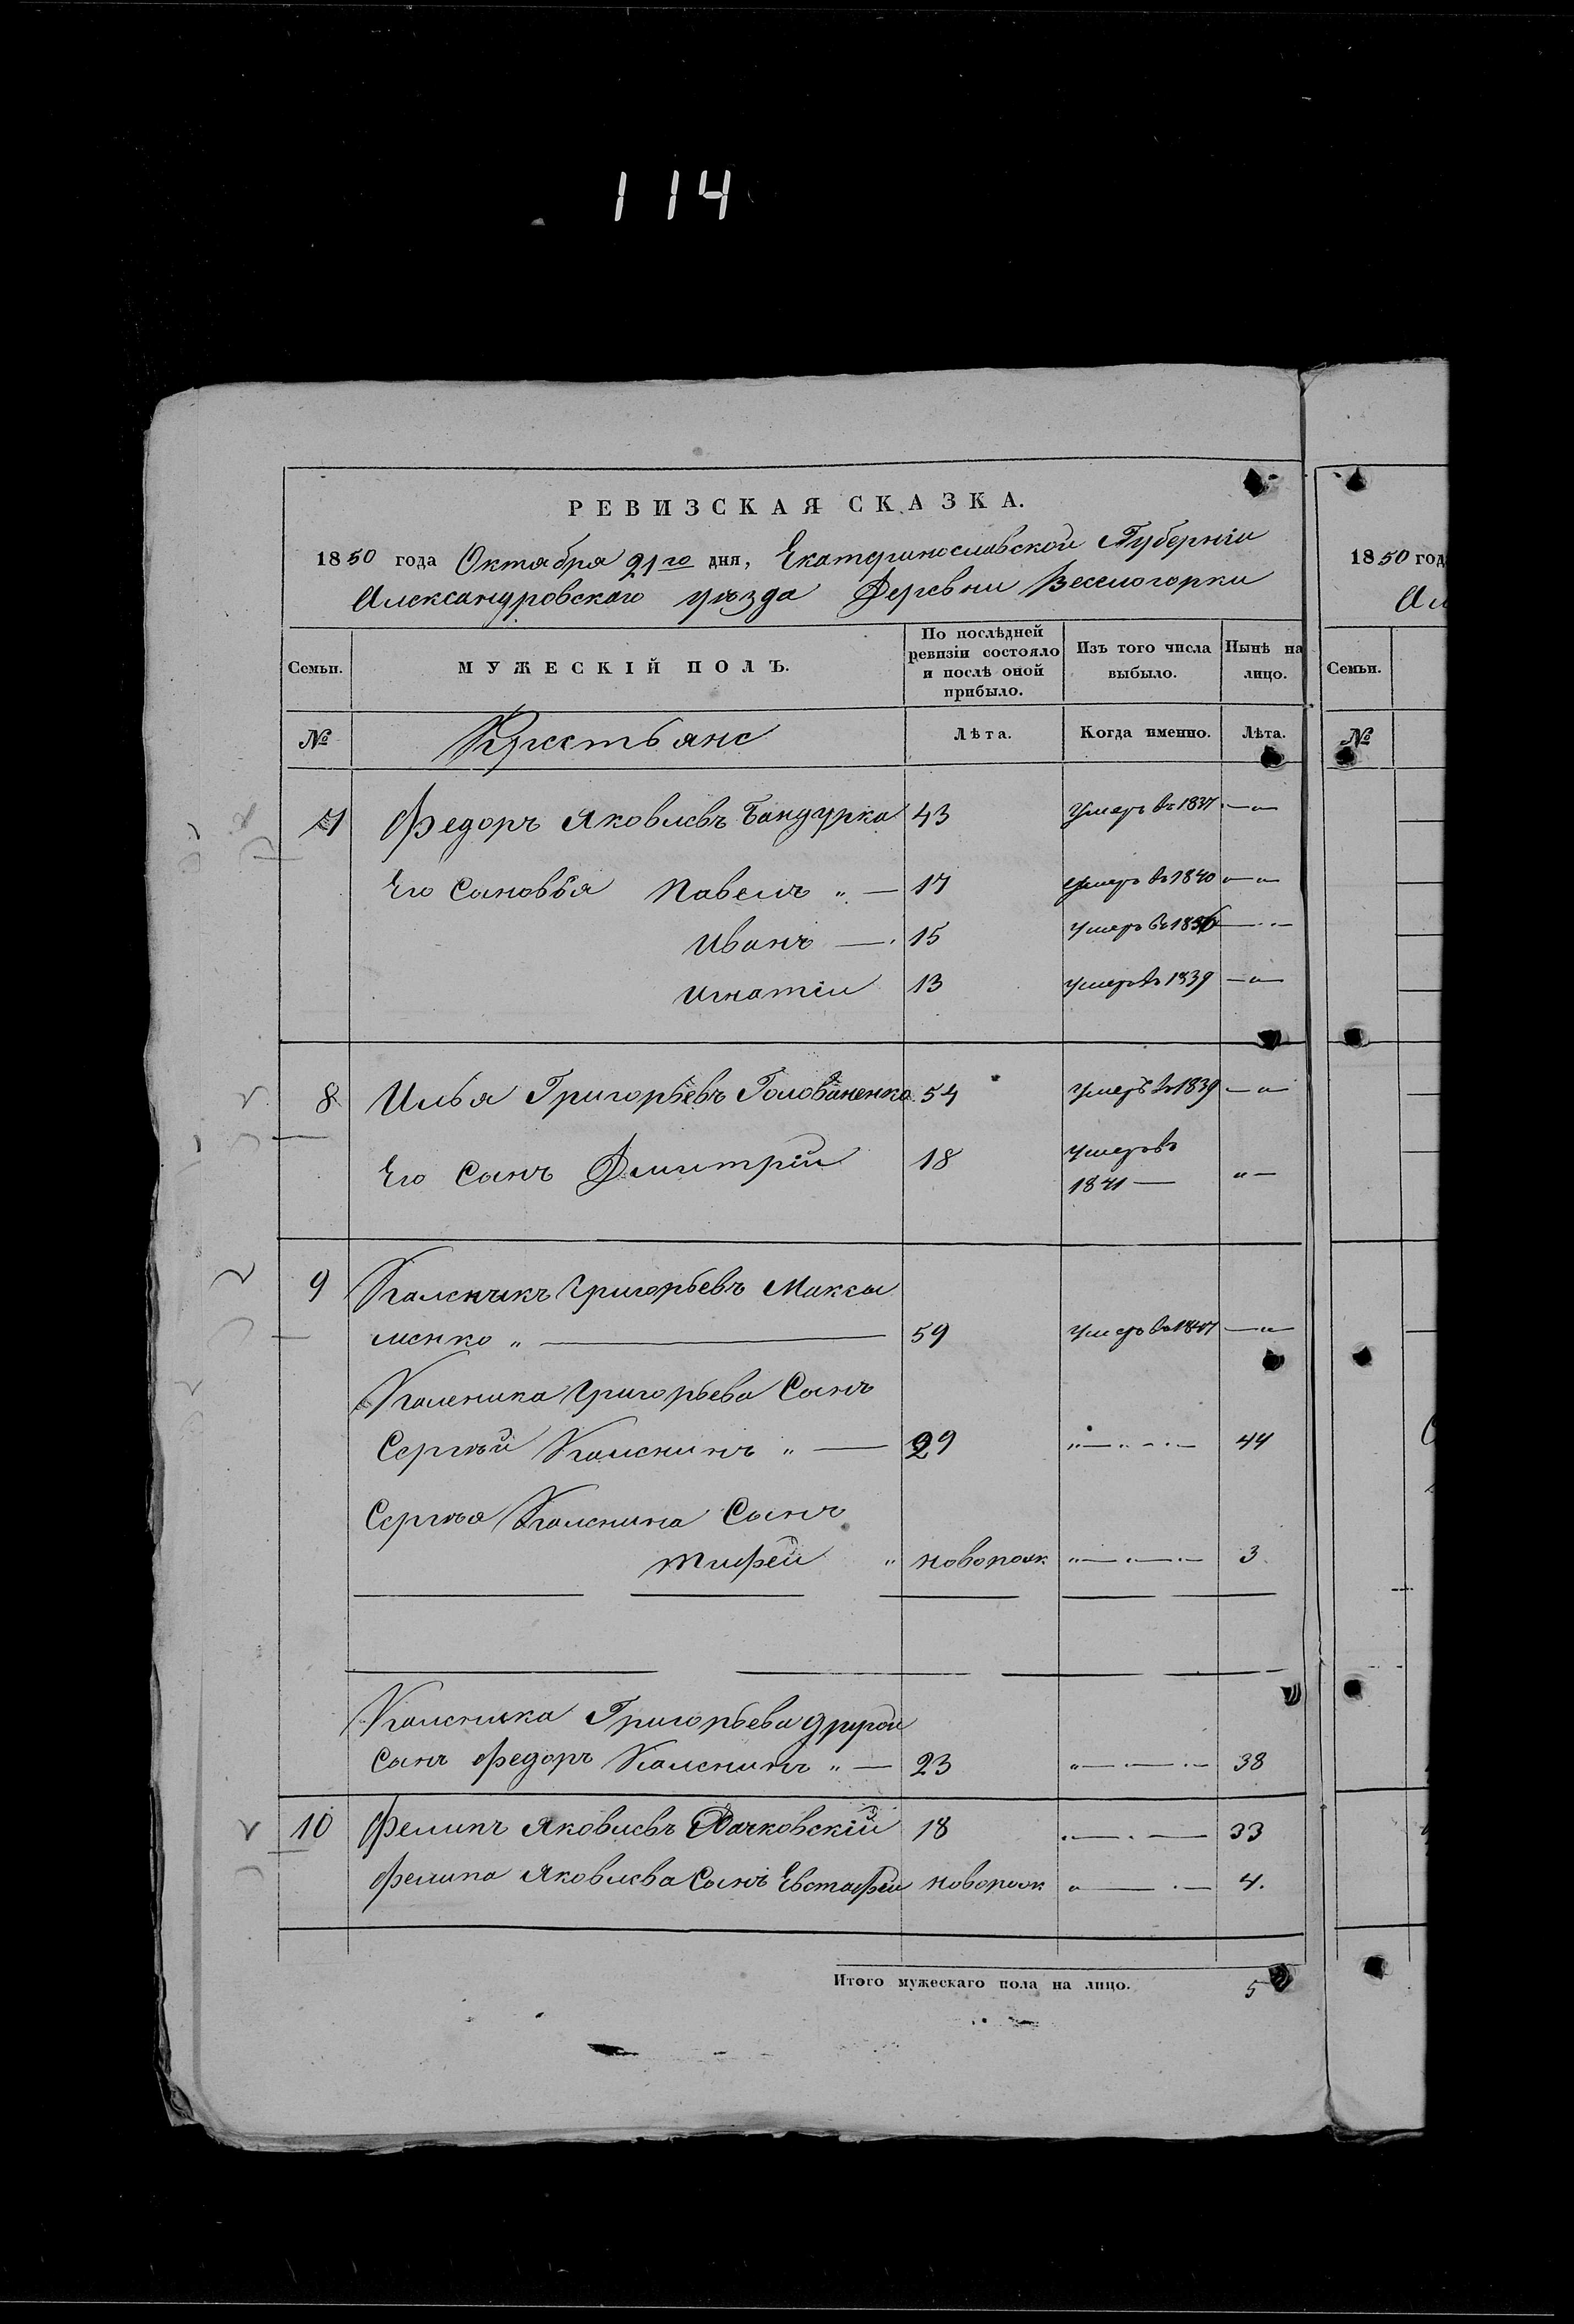 114
РЕВИЗСКАЯ СКАЗКА.
1850 года Октября 21го дня, Екатеринославской Губерніи
Александровскаго уѣзда Деревни Веселогорки
Семьи. МУЖЕСКІЙ ПОЛЪ. По послѣдней ревизіи состояло и послѣ оной прибыло. Изъ того числа выбыло. Нынѣ на лицо.
№ Крестьяне Лѣта. Когда именно. Лѣта.
7 Федоръ Яковлевъ Бандурка 43 Умеръ въ 1837 — „ —
Его Сыновья Павелъ „ — 17 умеръ въ 1840 — „ —
Иванъ — 15 умеръ въ 1836 — „ —
Игнатіи 13 умеръ въ 1839 — „ —
8 Илья Григорьевъ Голованенко 54 умеръ въ 1839 — „ —
Его Сынъ Дмитріи 18 умеръ въ
1841 — „ —
9 Каленикъ Григорьевъ Максы
менко „ — 59 умеръ въ 1847 — „ —
Каленика Григорьева Сынъ
Сергѣй Калснинъ „ — 29 „ — „ — 44
Сергѣя Каленина Сынъ
Тифей „ новорож „ — „ — 3
Каленика Григорьева другой
Сынъ Федоръ Каленинъ „ — 23 „ — „ — 38
10 Филипъ Яковлевъ Дачковскій 18 „ — „ — 33
Филипа Яковлева Сынъ Евстафеи новорож „ — „ — 4.
Итого мужескаго пола на лицо. 5
1850 год
Ал
Семьи.
№